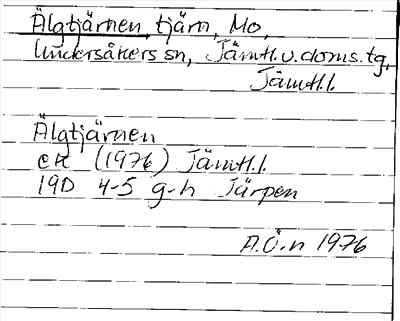 Älgtjärnen, tjärn, Mo,
Undersåkers sn, Jämtl.v.doms.tg,
Jämtl.l.
Älgtjärnen
ek (1976) Jämtl.l.
19D 4-5 g-h Järpen
A.Ö.n 1976